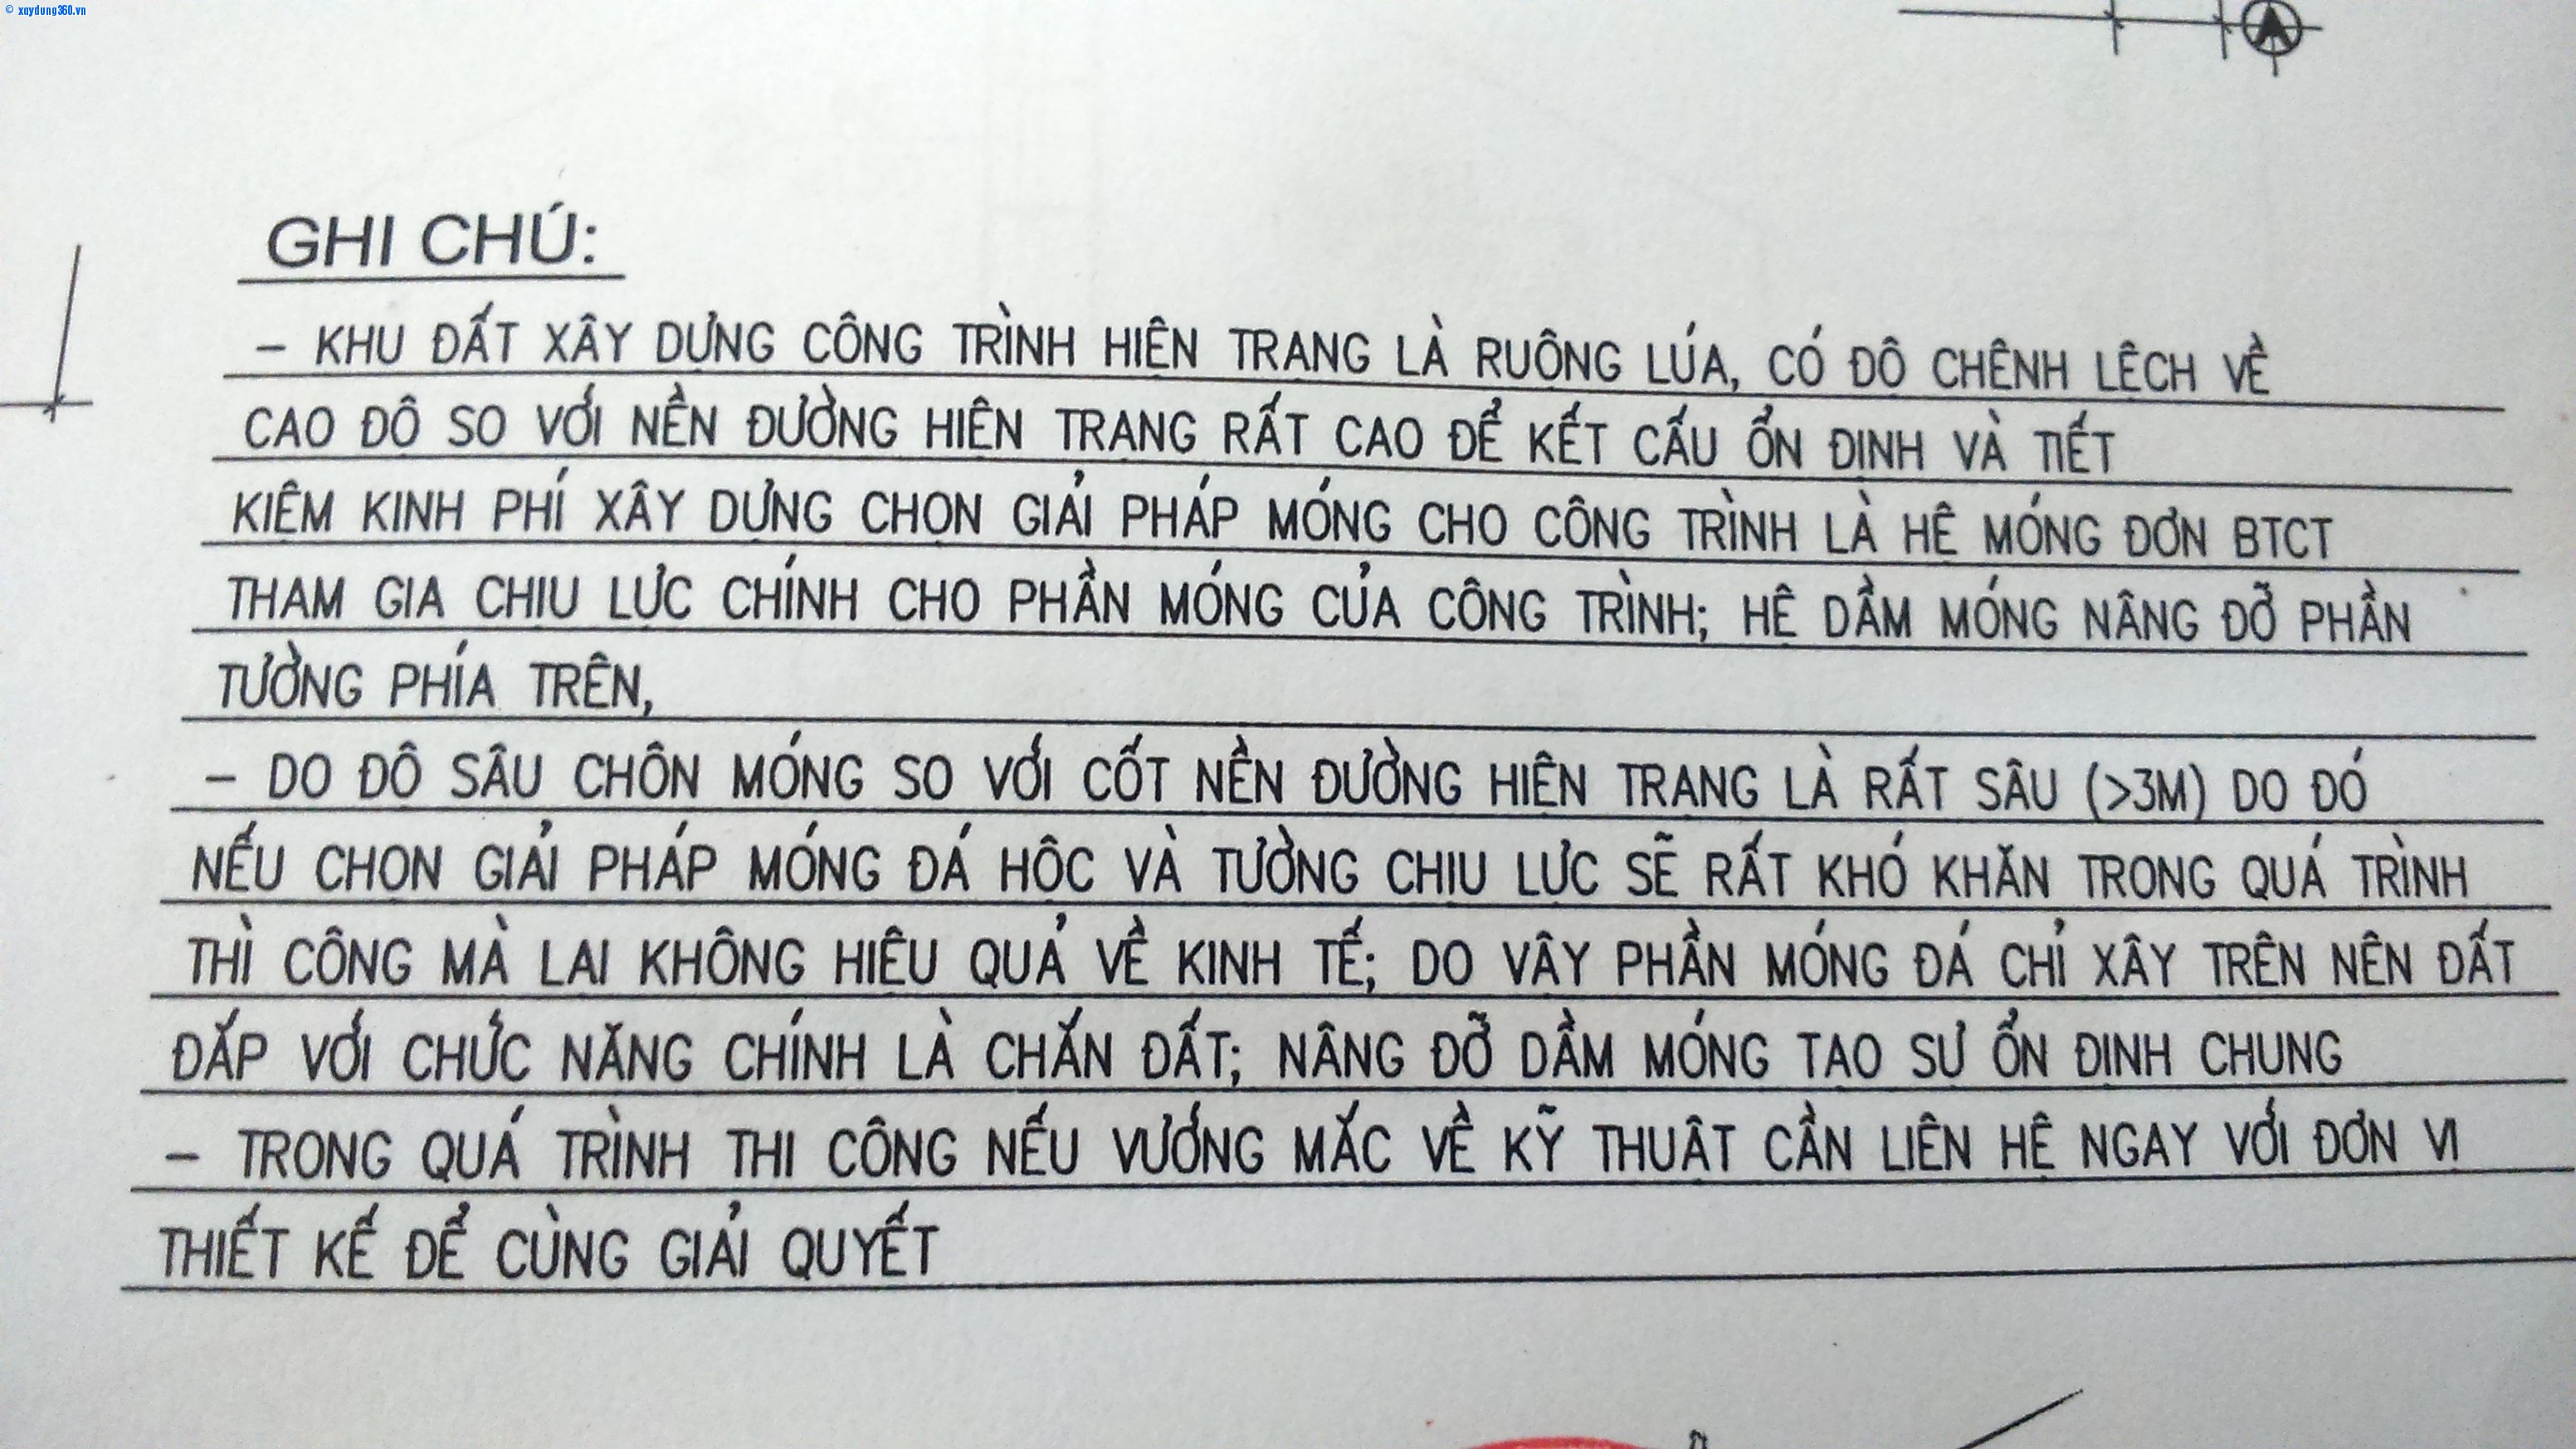 © xaydung360.vn
A
GHI CHÚ:
– KHU ĐẤT XÂY DỰNG CÔNG TRÌNH HIỆN TRẠNG LÀ RUỘNG LÚA, CÓ ĐỘ CHÊNH LỆCH VỀ
CAO ĐỘ SO VỚI NỀN ĐƯỜNG HIỆN TRẠNG RẤT CAO ĐỂ KẾT CẤU ỔN ĐỊNH VÀ TIẾT
KIỆM KINH PHÍ XÂY DỰNG CHỌN GIẢI PHÁP MÓNG CHO CÔNG TRÌNH LÀ HỆ MÓNG ĐƠN BTCT
THAM GIA CHỊU LỰC CHÍNH CHO PHẦN MÓNG CỦA CÔNG TRÌNH; HỆ DẦM MÓNG NÂNG ĐỠ PHẦN
TƯỜNG PHÍA TRÊN,
– DO ĐỘ SÂU CHÔN MÓNG SO VỚI CỐT NỀN ĐƯỜNG HIỆN TRẠNG LÀ RẤT SÂU (>3M) DO ĐÓ
NẾU CHỌN GIẢI PHÁP MÓNG ĐÁ HỘC VÀ TƯỜNG CHỊU LỰC SẼ RẤT KHÓ KHĂN TRONG QUÁ TRÌNH
THÌ CÔNG MÀ LẠI KHÔNG HIỆU QUẢ VỀ KINH TẾ; DO VẬY PHẦN MÓNG ĐÁ CHỈ XÂY TRÊN NÊN ĐẤT
ĐẮP VỚI CHỨC NĂNG CHÍNH LÀ CHẮN ĐẤT; NÂNG ĐỠ DẦM MÓNG TẠO SỰ ỔN ĐỊNH CHUNG
– TRONG QUÁ TRÌNH THI CÔNG NẾU VƯỚNG MẮC VỀ KỸ THUẬT CẦN LIÊN HỆ NGAY VỚI ĐƠN VỊ
THIẾT KẾ ĐỂ CÙNG GIẢI QUYẾT